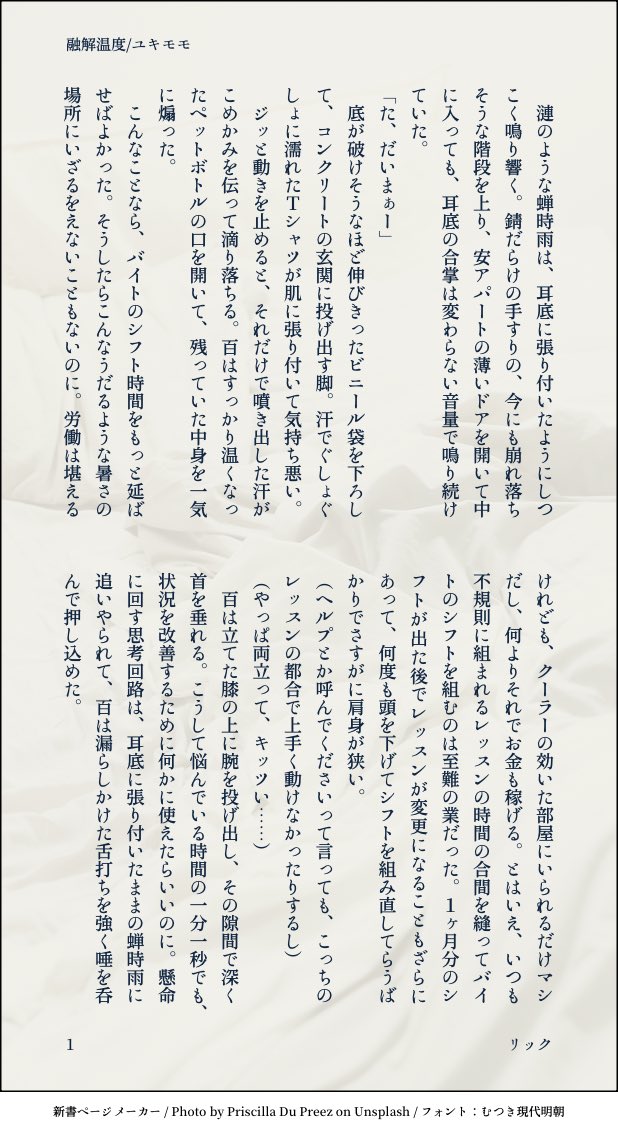 融解温度/ユキモモ
漣のような蝉時雨は、耳底に張り付いたようにしつ
こく鳴り響く。錆だらけの手すりの、今にも崩れ落ち
そうな階段を上り、安アパートの薄いドアを開いて中
に入っても、耳底の合掌は変わらない音量で鳴り続け
ていた。
「た、だいまぁー」
底が破けそうなほど伸びきったビニール袋を下ろし
て、コンクリートの玄関に投げ出す脚。汗でぐしょぐ
しょに濡れたTシャツが肌に張り付いて気持ち悪い。
ジッと動きを止めると、それだけで噴き出した汗が
こめかみを伝って滴り落ちる。百はすっかり温くなっ
たペットボトルの口を開いて、残っていた中身を一気
に煽った。
こんなことなら、バイトのシフト時間をもっと延ば
せばよかった。そうしたらこんなうだるような暑さの
場所にいざるをえないこともないのに。労働は堪える
けれども、クーラーの効いた部屋にいられるだけマシ
だし、何よりそれでお金も稼げる。とはいえ、いつも
不規則に組まれるレッスンの時間の合間を縫ってバイ
トのシフトを組むのは至難の業だった。1ヶ月分のシ
フトが出た後でレッスンが変更になることもざらに
あって、何度も頭を下げてシフトを組み直してらうば
かりでさすがに肩身が狭い。
(ヘルプとか呼んでくださいって言っても、こっちの
レッスンの都合で上手く動けなかったりするし)
(やっぱ両立って、キッツい……)
百は立てた膝の上に腕を投げ出し、その隙間で深く
首を垂れる。こうして悩んでいる時間の一分一秒でも、
状況を改善するために何かに使えたらいいのに。懸命
に回す思考回路は、耳底に張り付いたままの蝉時雨に
追いやられて、百は漏らしかけた舌打ちを強く唾を呑
んで押し込めた。
1
リック
新書ページメーカー / Photo by Priscilla Du Preez on Unsplash / フォント：むつき現代明朝